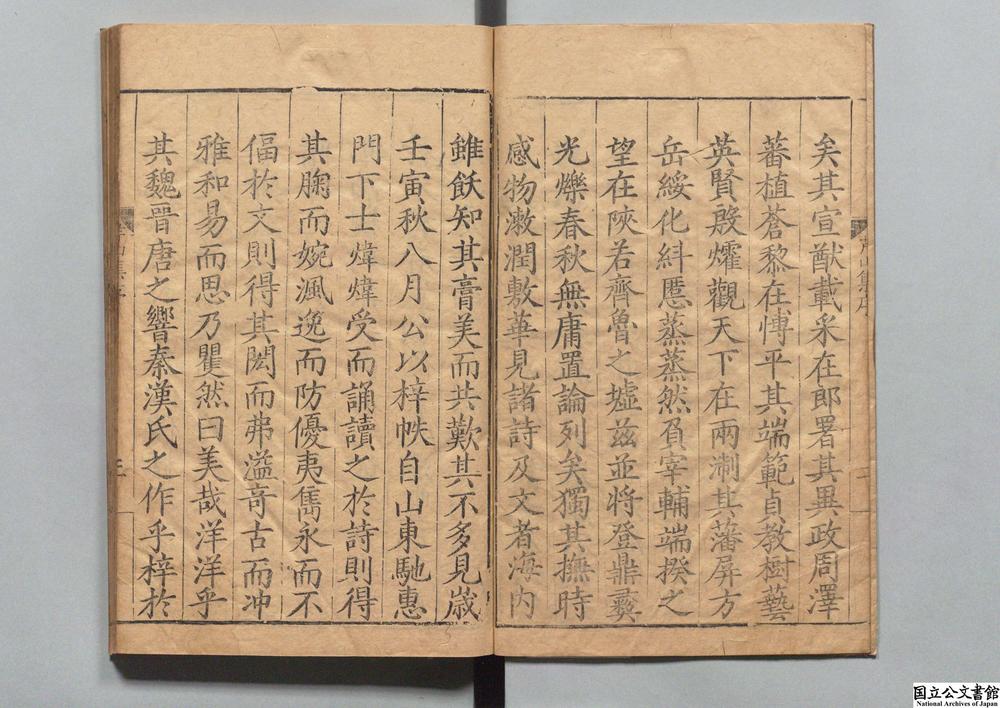 矣其宣猷載采在郎署其異政周澤
蕃植蒼黎在博平其端範貞教樹藝
英賢殷燿觀天下在兩淛其藩屏方
岳綏化糾慝蒸蒸然負宰輔端揆之
望在陝若齊魯之墟茲並將登鼎彝
光爍春秋無庸置論列矣獨其撫時
感物漱潤敷華見諸詩及文者海内
雖飫知其膏美而共歎其不多見歲
壬寅秋八月公以梓帙自山東馳惠
門下士煒煒受而誦讀之於詩則得
其腴而婉颯逸而防優夷雋永而不
偪於文則得其閎而弗溢奇古而冲
雅和易而思乃瞿然曰美哉洋洋乎
其魏晉唐之響秦漢氏之作乎梓於
国立公文書館
National Archives of Japan